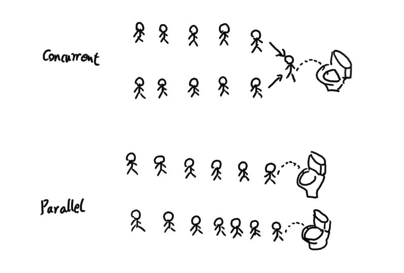 Concurrent
Parallel